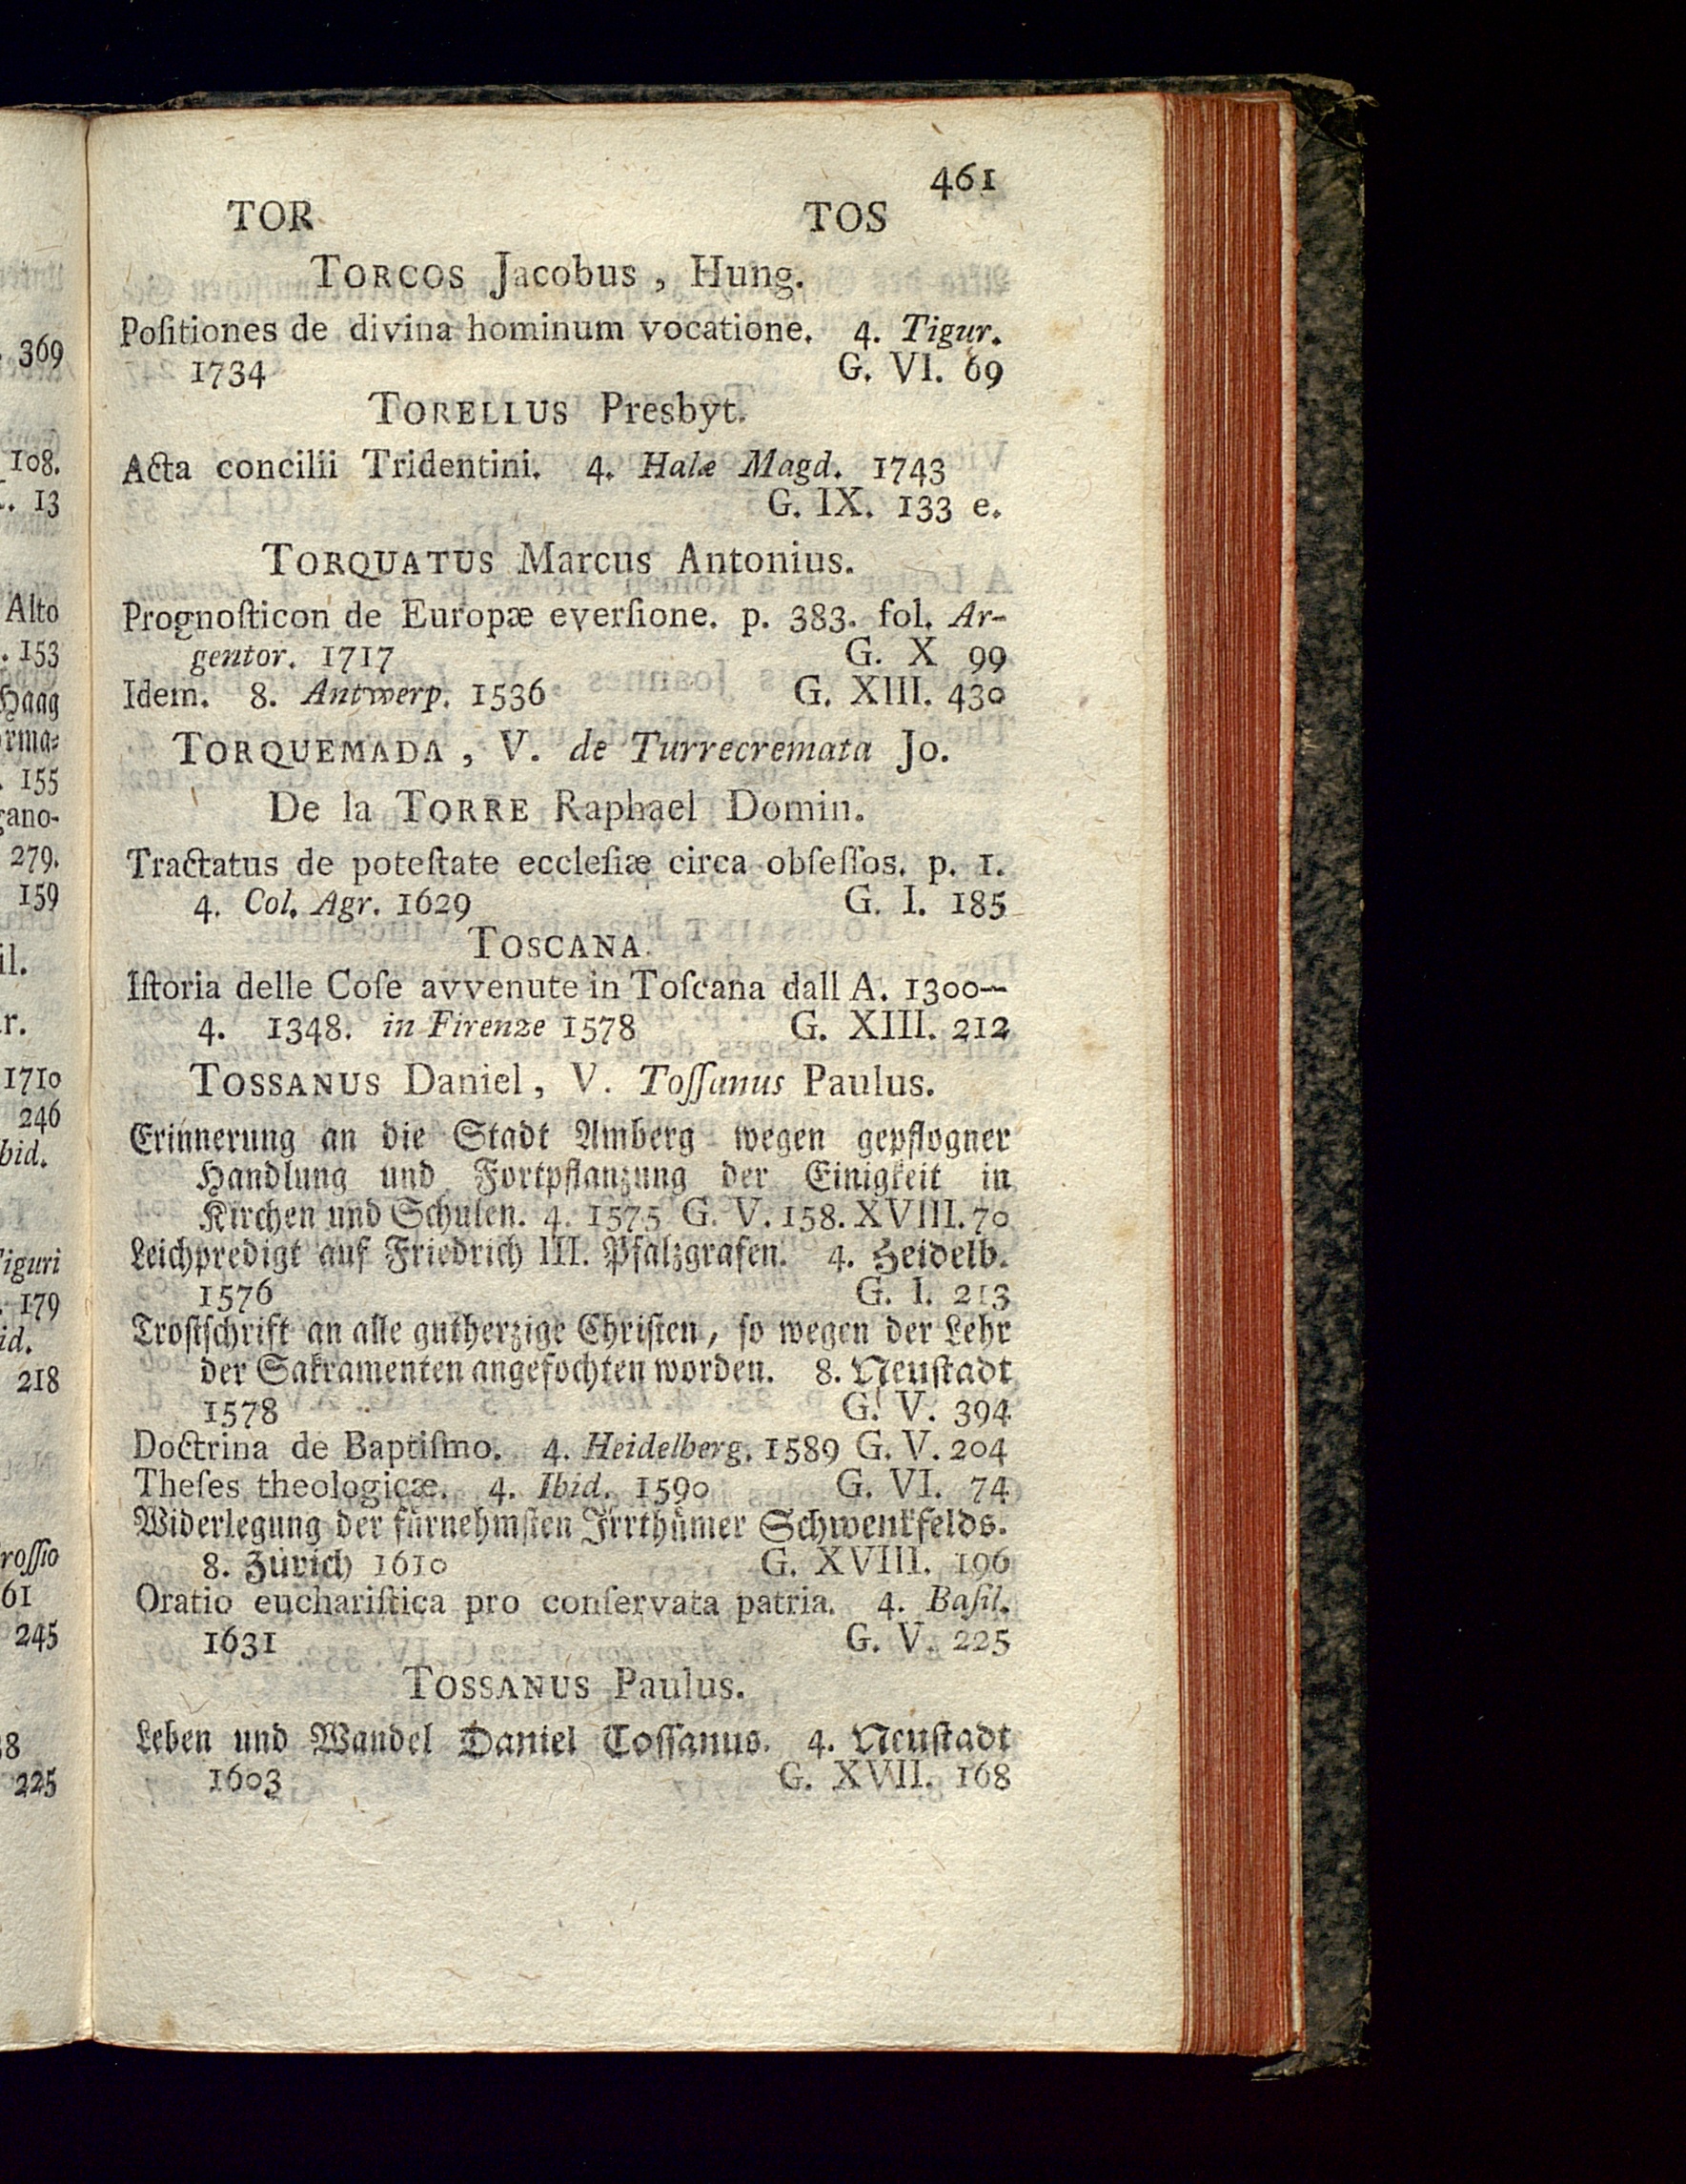 461
TOR TOS
TORCOS Jacobus, Hung.
Poſitiones de divina hominum vocatione. 4. Tigur.
1734 G. VI. 69
TORELLUS Presbyt.
Acta concilii Tridentini. 4. Halæ Magd. 1743
G. IX. 133 e.
TORQUATUS Marcus Antonius.
Prognoſticon de Europæ everſione. p. 383. fol. Ar-
gentor. 1717 G. X 99
Idem. 8. Antwerp. 1536 G. XIII. 430
TORQUEMADA, V. de Turrecremata Jo.
De la TORRE Raphael Domin.
Tractatus de poteſtate eccleſiæ circa obſeſſos. p. 1.
4. Col. Agr. 1629 G. I. 185
TOSCANA.
Iſtoria delle Coſe avvenute in Toſcana dall A. 1300—
4. 1348. in Firenze 1578 G. XIII. 212
TOSSANUS Daniel, V. Toſſanus Paulus.
Erinnerung an die Stadt Amberg wegen gepflogner
Handlung und Fortpflanzung der Einigkeit in
Kirchen und Schulen. 4. 1575 G. V. 158. XVIII. 70
Leichpredigt auf Friedrich III. Pfalzgrafen. 4. Heidelb.
1576 G. I. 213
Troſtſchrift an alle gutherzige Chriſten, ſo wegen der Lehr
der Sakramenten angefochten worden. 8. Neuſtadt
1578 G. V. 394
Doctrina de Baptiſmo. 4. Heidelberg. 1589 G. V. 204
Theſes theologicæ. 4. Ibid. 1590 G. VI. 74
Widerlegung der fürnehmſten Irrthümer Schwenkfelds.
8. Zürich 1610 G. XVIII. 196
Oratio euchariſtica pro conſervata patria. 4. Baſil.
1631 G. V. 225
TOSSANUS Paulus.
Leben und Wandel Daniel Toſſanus. 4. Neuſtadt
1603 G. XVII. 168
369
108.
13
Alto
153
Haag
155
279.
159
1710
246
179
218
61
245
225